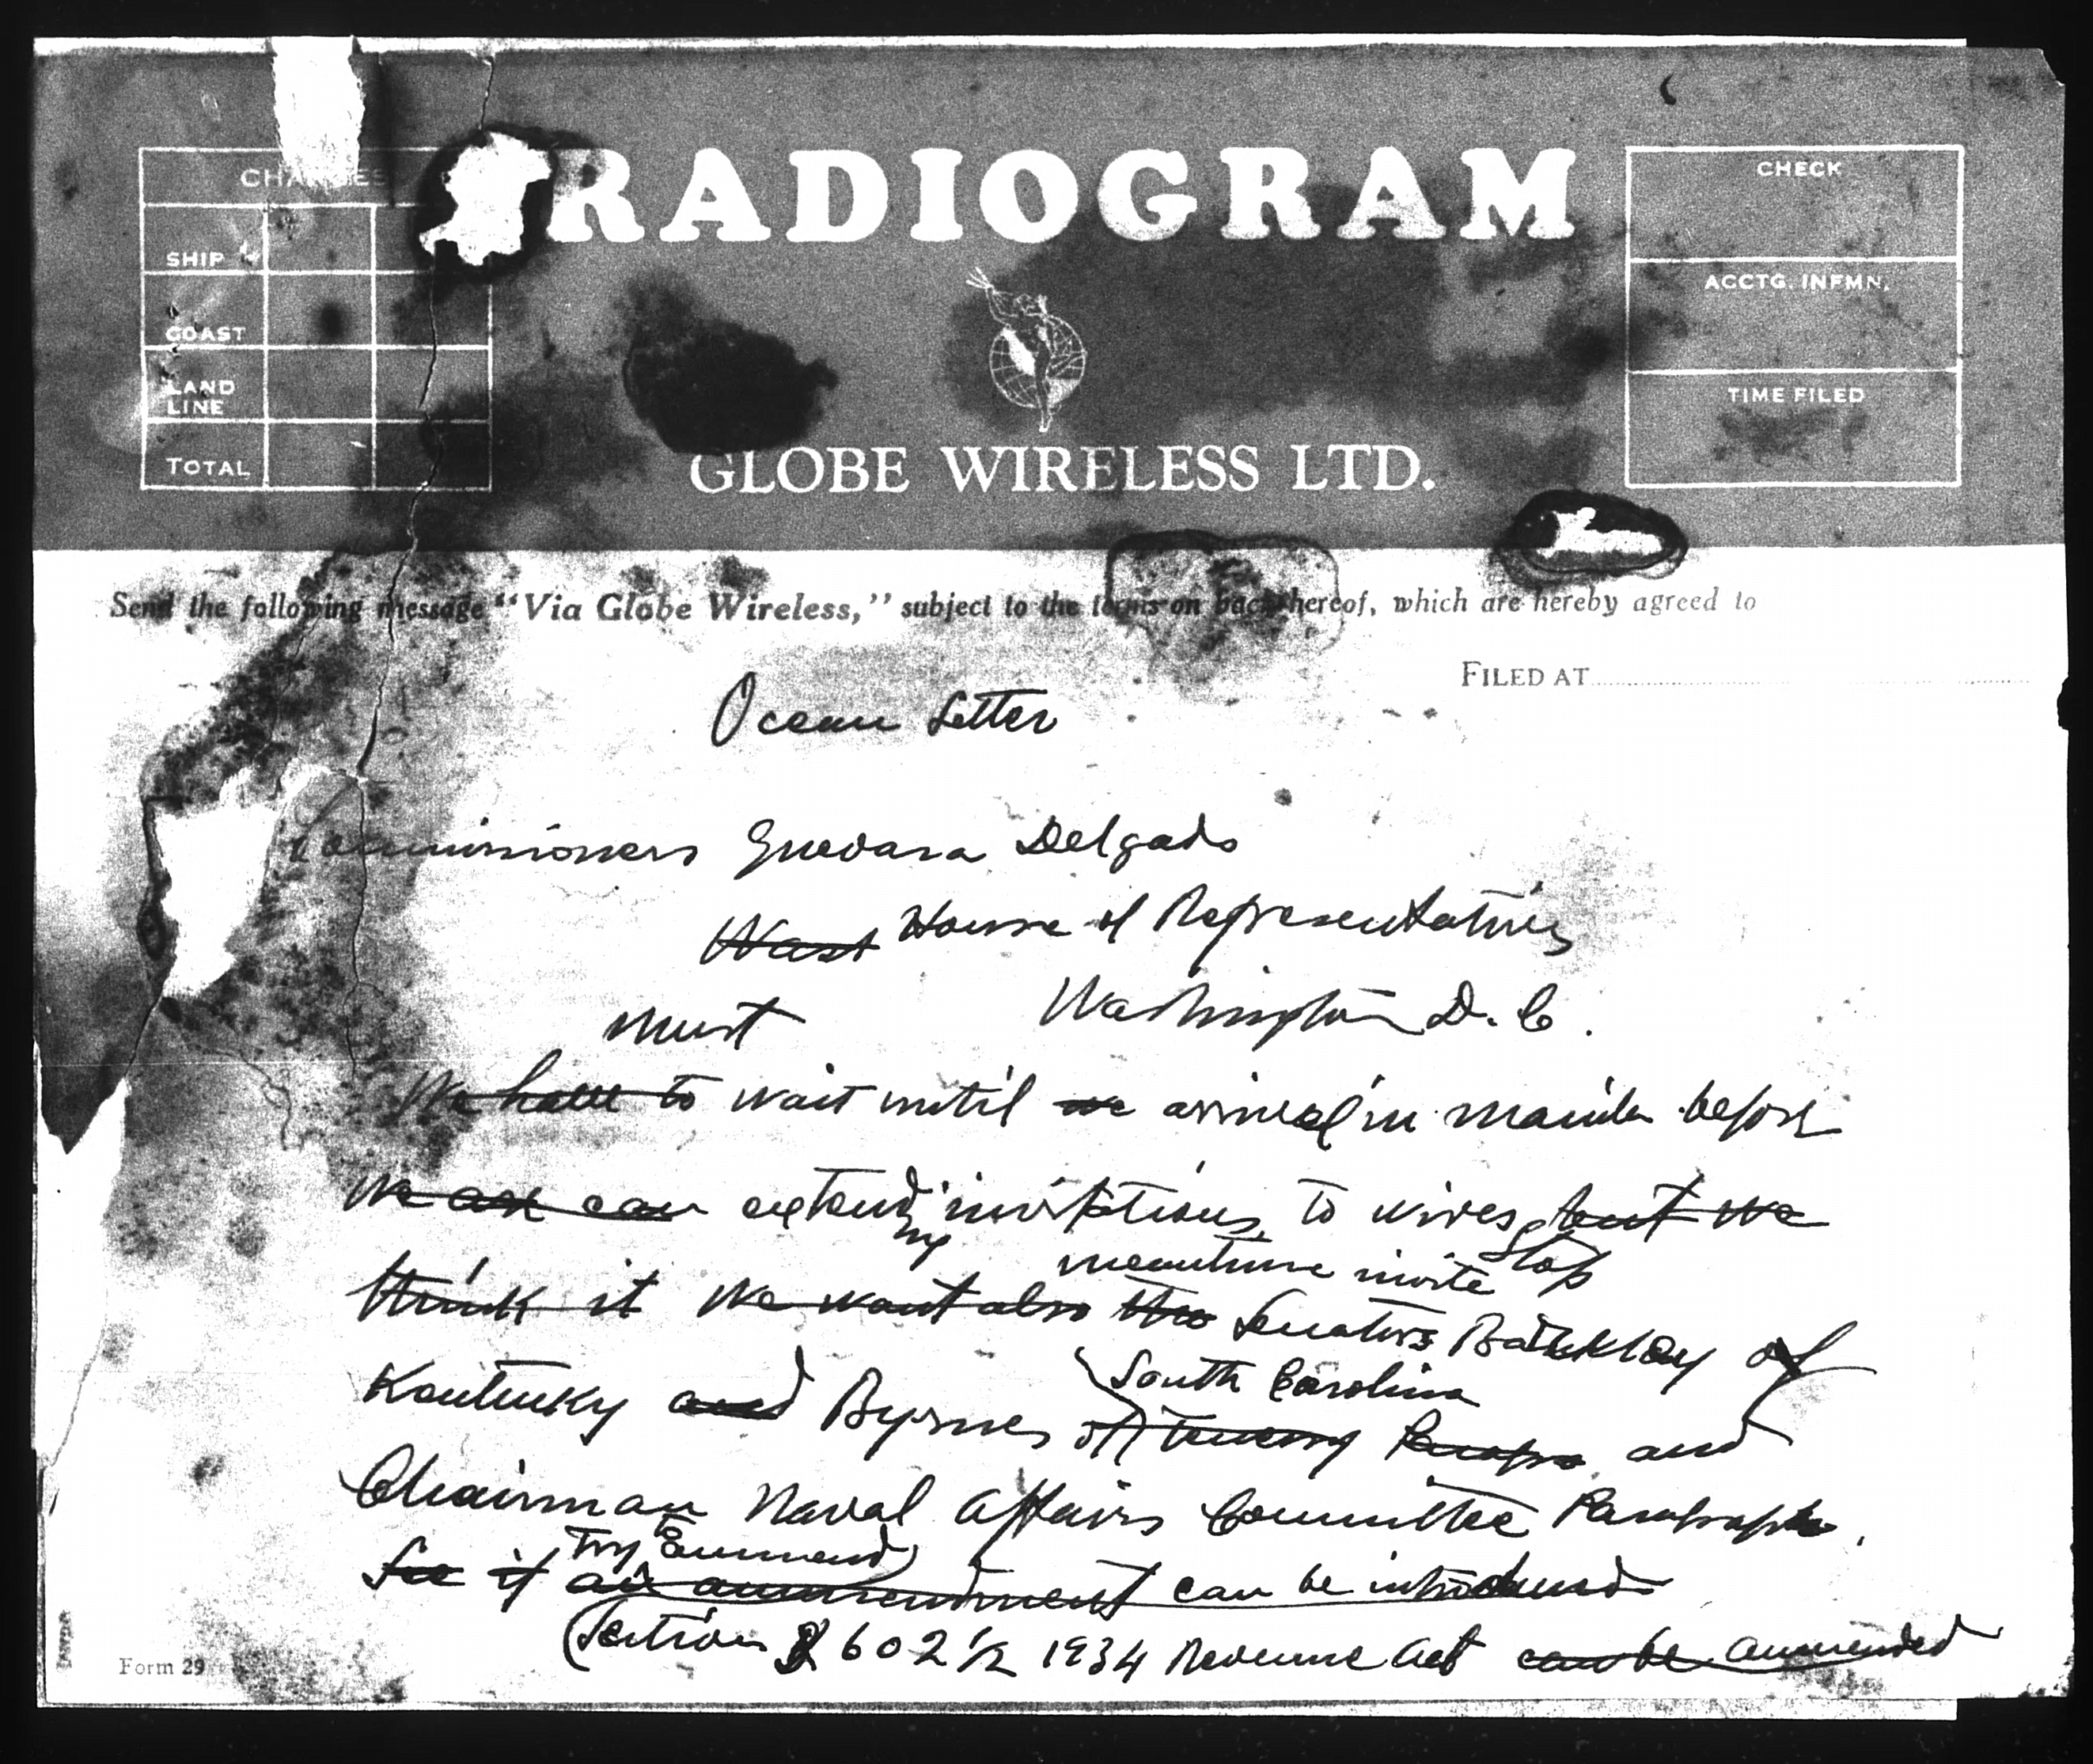 CHARGES
SHIP
COAST
LAND LINE
TOTAL
RADIOGRAM
GLOBE WIRELESS LTD.
CHECK
ACCTG. INFMN.
TIME FILED
Send the following message "Via Globe Wireless," subject to the terms on back hereof, which are hereby agreed to
FILED AT
Ocean Letter
Commissioners Guevara Delgado
Wast House of Representatives
Washington D. C.
must
We have to wait until we arrival in Manila before
we ask can extending invitations to wives but we
Stop
meantime invite
think it we want also two Senators Barkley of
South Carolina
Kentucky and Byrnes of and
Chairman Naval Affairs Committee Paragraph.
Try to ammend
See if an ammendment can be introduced
Section 602 1/2 1934 Revenue Act can be ammended
Form 29